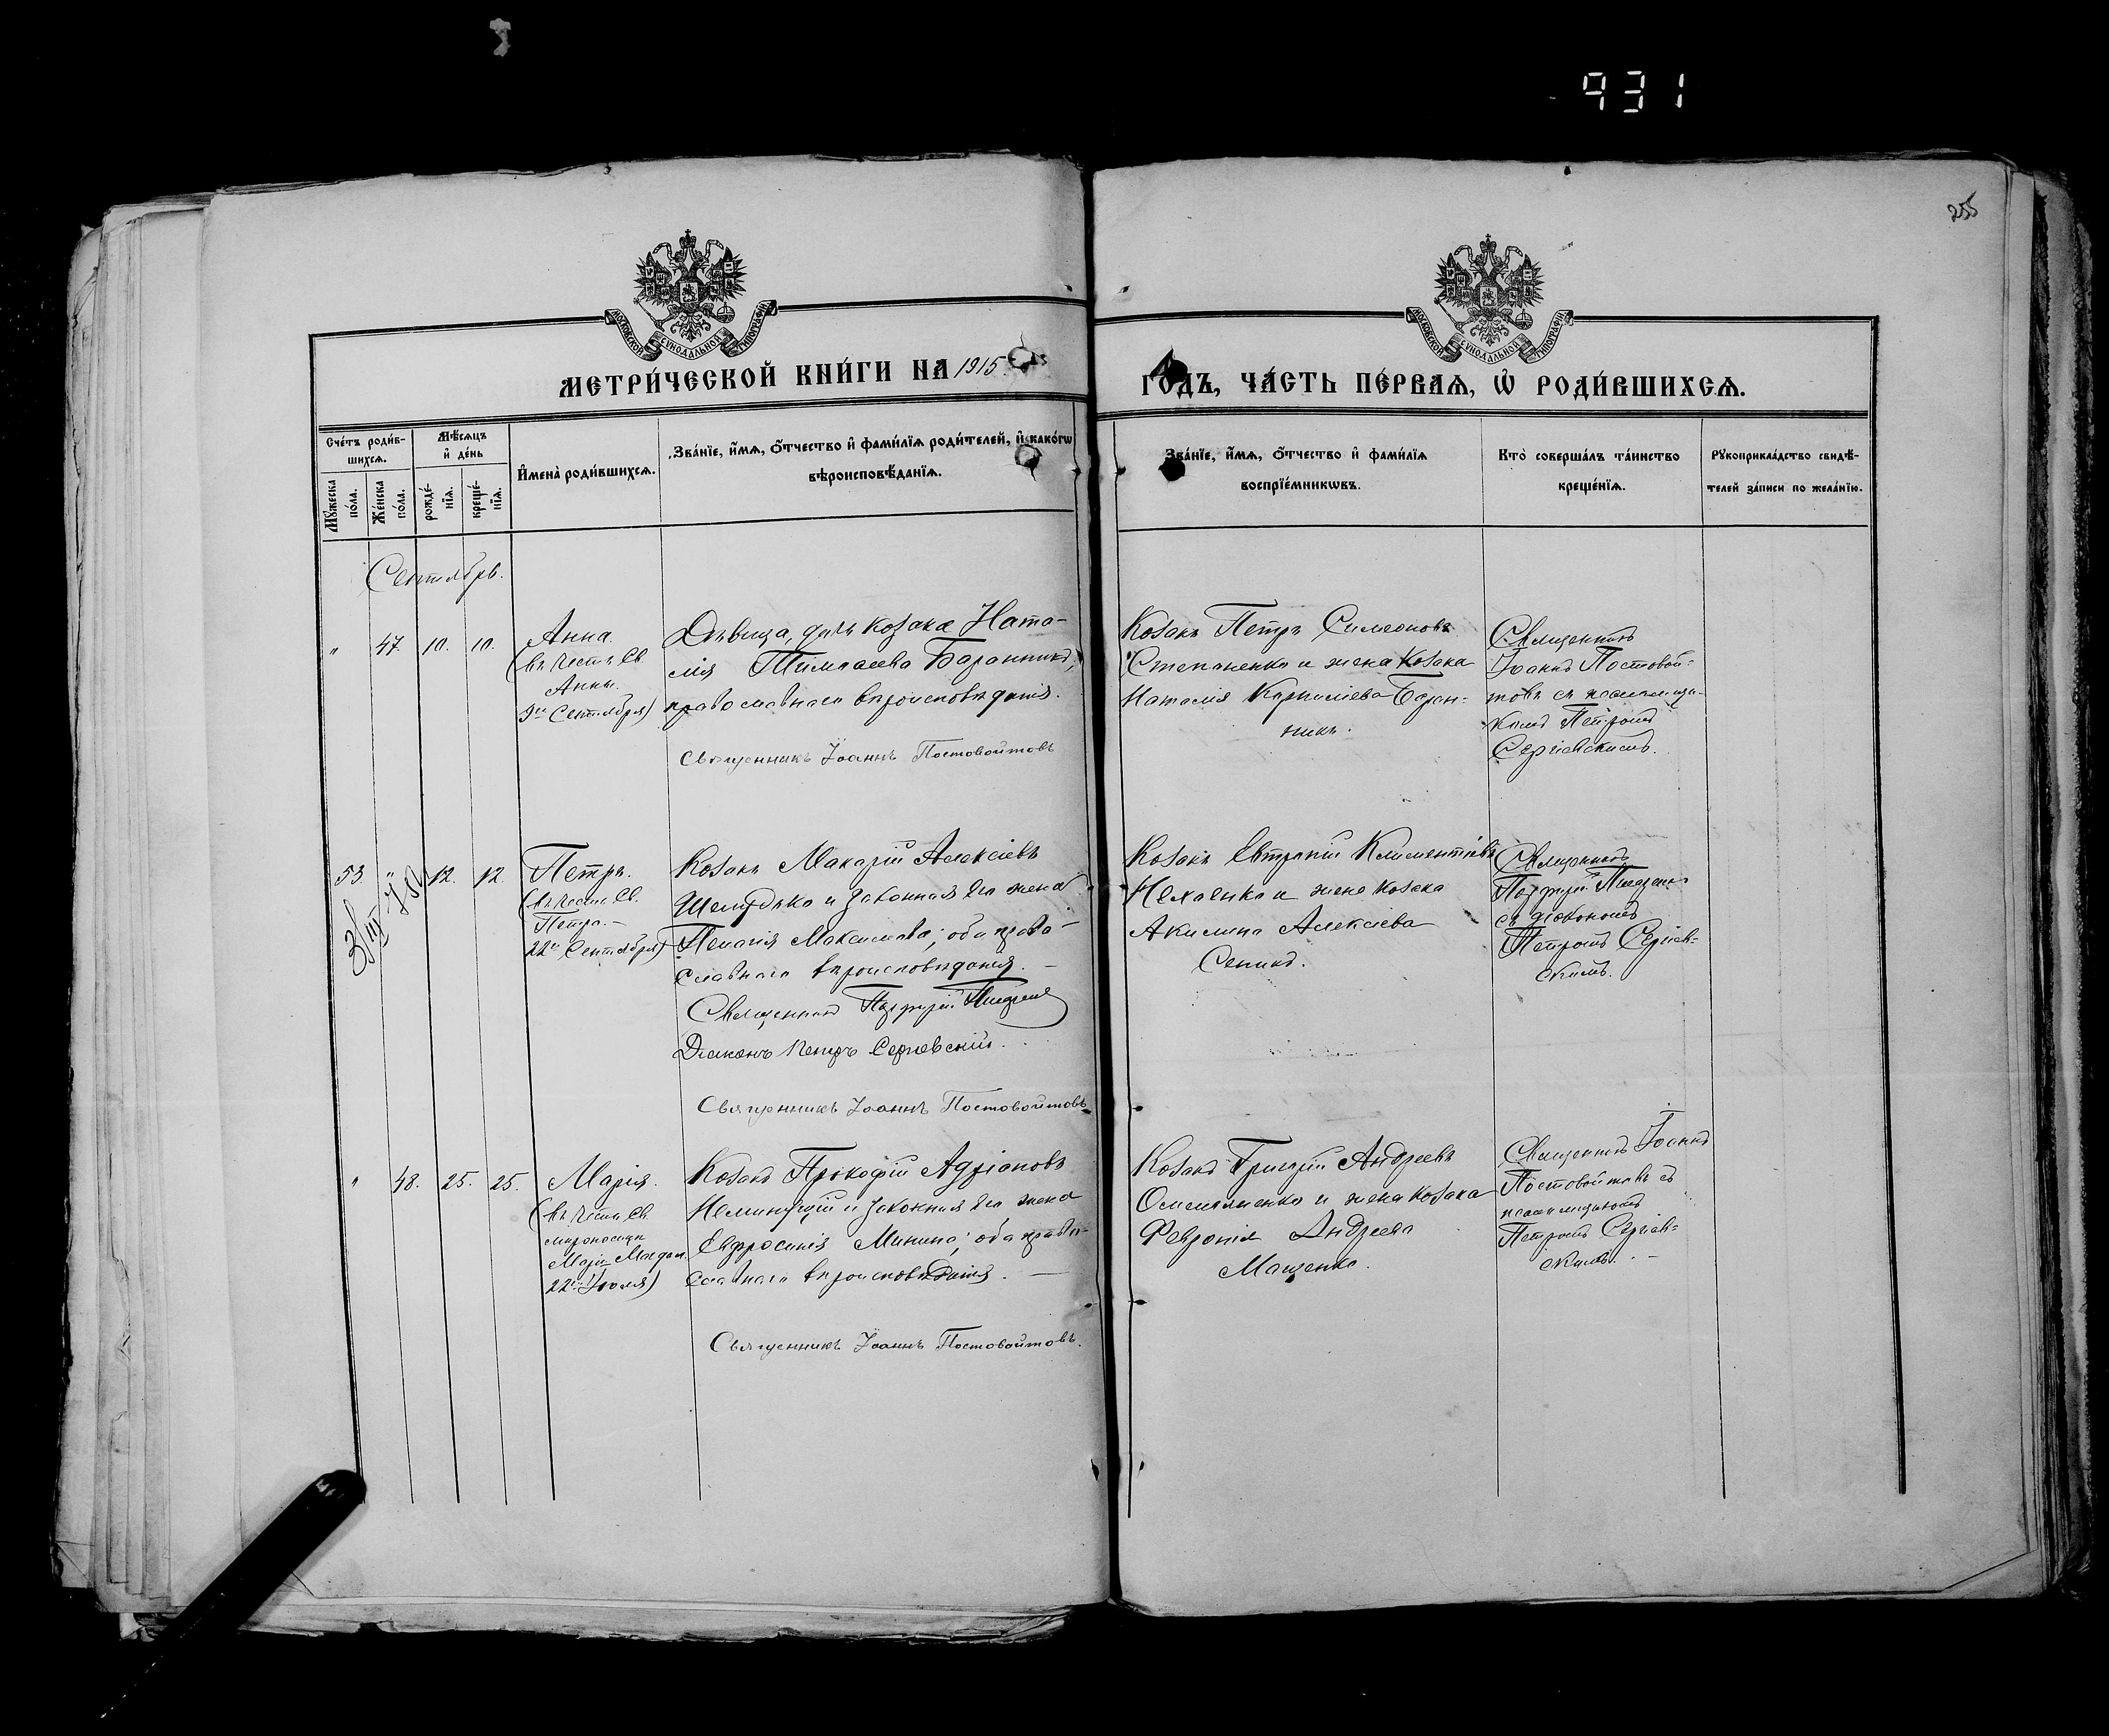 931
255
МОСКОВСКОЙ СѴНОДАЛЬНОЙ ТИПОГРАФІИ
МОСКОВСКОЙ СѴНОДАЛЬНОЙ ТИПОГРАФІИ
МЕТРИ́ЧЕСКОЙ КНИ́ГИ НА 1915
ГОДЪ, ЧА́СТЬ ПЕ́РВАѦ, Ѡ҆ РОДИ́ВШИХСѦ.
Сче́тъ роди́в-
шихсѧ.
Мꙋ́жеска по́ла.
Же́нска по́ла.
Мѣ́сѧцъ
и҆ де́нь
рожде́-
нїѧ.
креще́-
нїѧ.
И҆мена̀ роди́вшихсѧ.
Зва́нїе, и҆́мѧ, ѻ҆́тчество и҆ фами́лїѧ роди́телей, и҆ како́гѡ
вѣроисповѣ́данїѧ.
Зва́нїе, и҆́мѧ, ѻ҆́тчество и҆ фами́лїѧ
воспрїе́мникѡвъ.
Кто̀ соверша́лъ та́инство
креще́нїѧ.
Рꙋкоприкла́дство свидѣ́-
телей за́писи по жела́нїю.
Сентябрь.
" 47. 10. 10.
Анна.
(въ честь Св.
Анны.
9го Сентября)
Дѣвица, дочь козака Ната-
лія Тимофеева Баранникъ,
православнаго вѣроисповѣданія.
Священникъ Іоаннъ Постовойтовъ
Козакъ Петръ Симеоновъ
Степаненко и жена козака
Наталія Корнилієва Баран-
никъ.
Священникъ
Іоаннъ Постовой-
товъ съ псаломщи-
комъ Петромъ
Сергіевскимъ.
53. " 12. 12.
Петръ.
(въ честь Св.
Петра.
22го Сентября)
Козакъ Макарій Алексіевъ
Шелудько и законная его жена
Пелагія Максимова; оба право-
славнаго вѣроисповѣданія.
Священникъ Порфирій
Діаконъ Петръ Сергіевскій.
Священникъ Іоаннъ Постовойтовъ
Козакъ Евтропій Климентіевъ
и жена козака
Акилина Алексіева
Священникъ
Порфирій
съ діакономъ
Петромъ Сергіев-
скимъ.
" 48. 25. 25.
Марія.
(въ честь Св.
мироносицы
Маріи Магдал.
22го Іюля)
Козакъ Прокофій Адріановъ
и законная его жена
Евфросинія Минина; оба право-
славнаго вѣроисповѣданія.
Священникъ Іоаннъ Постовойтовъ.
Козакъ Григорій Андреевъ
и жена козака
Февронія Андреева
Мащенко.
Священникъ Іоаннъ
Постовойтовъ съ
псаломщикомъ
Петромъ Сергіев-
скимъ.